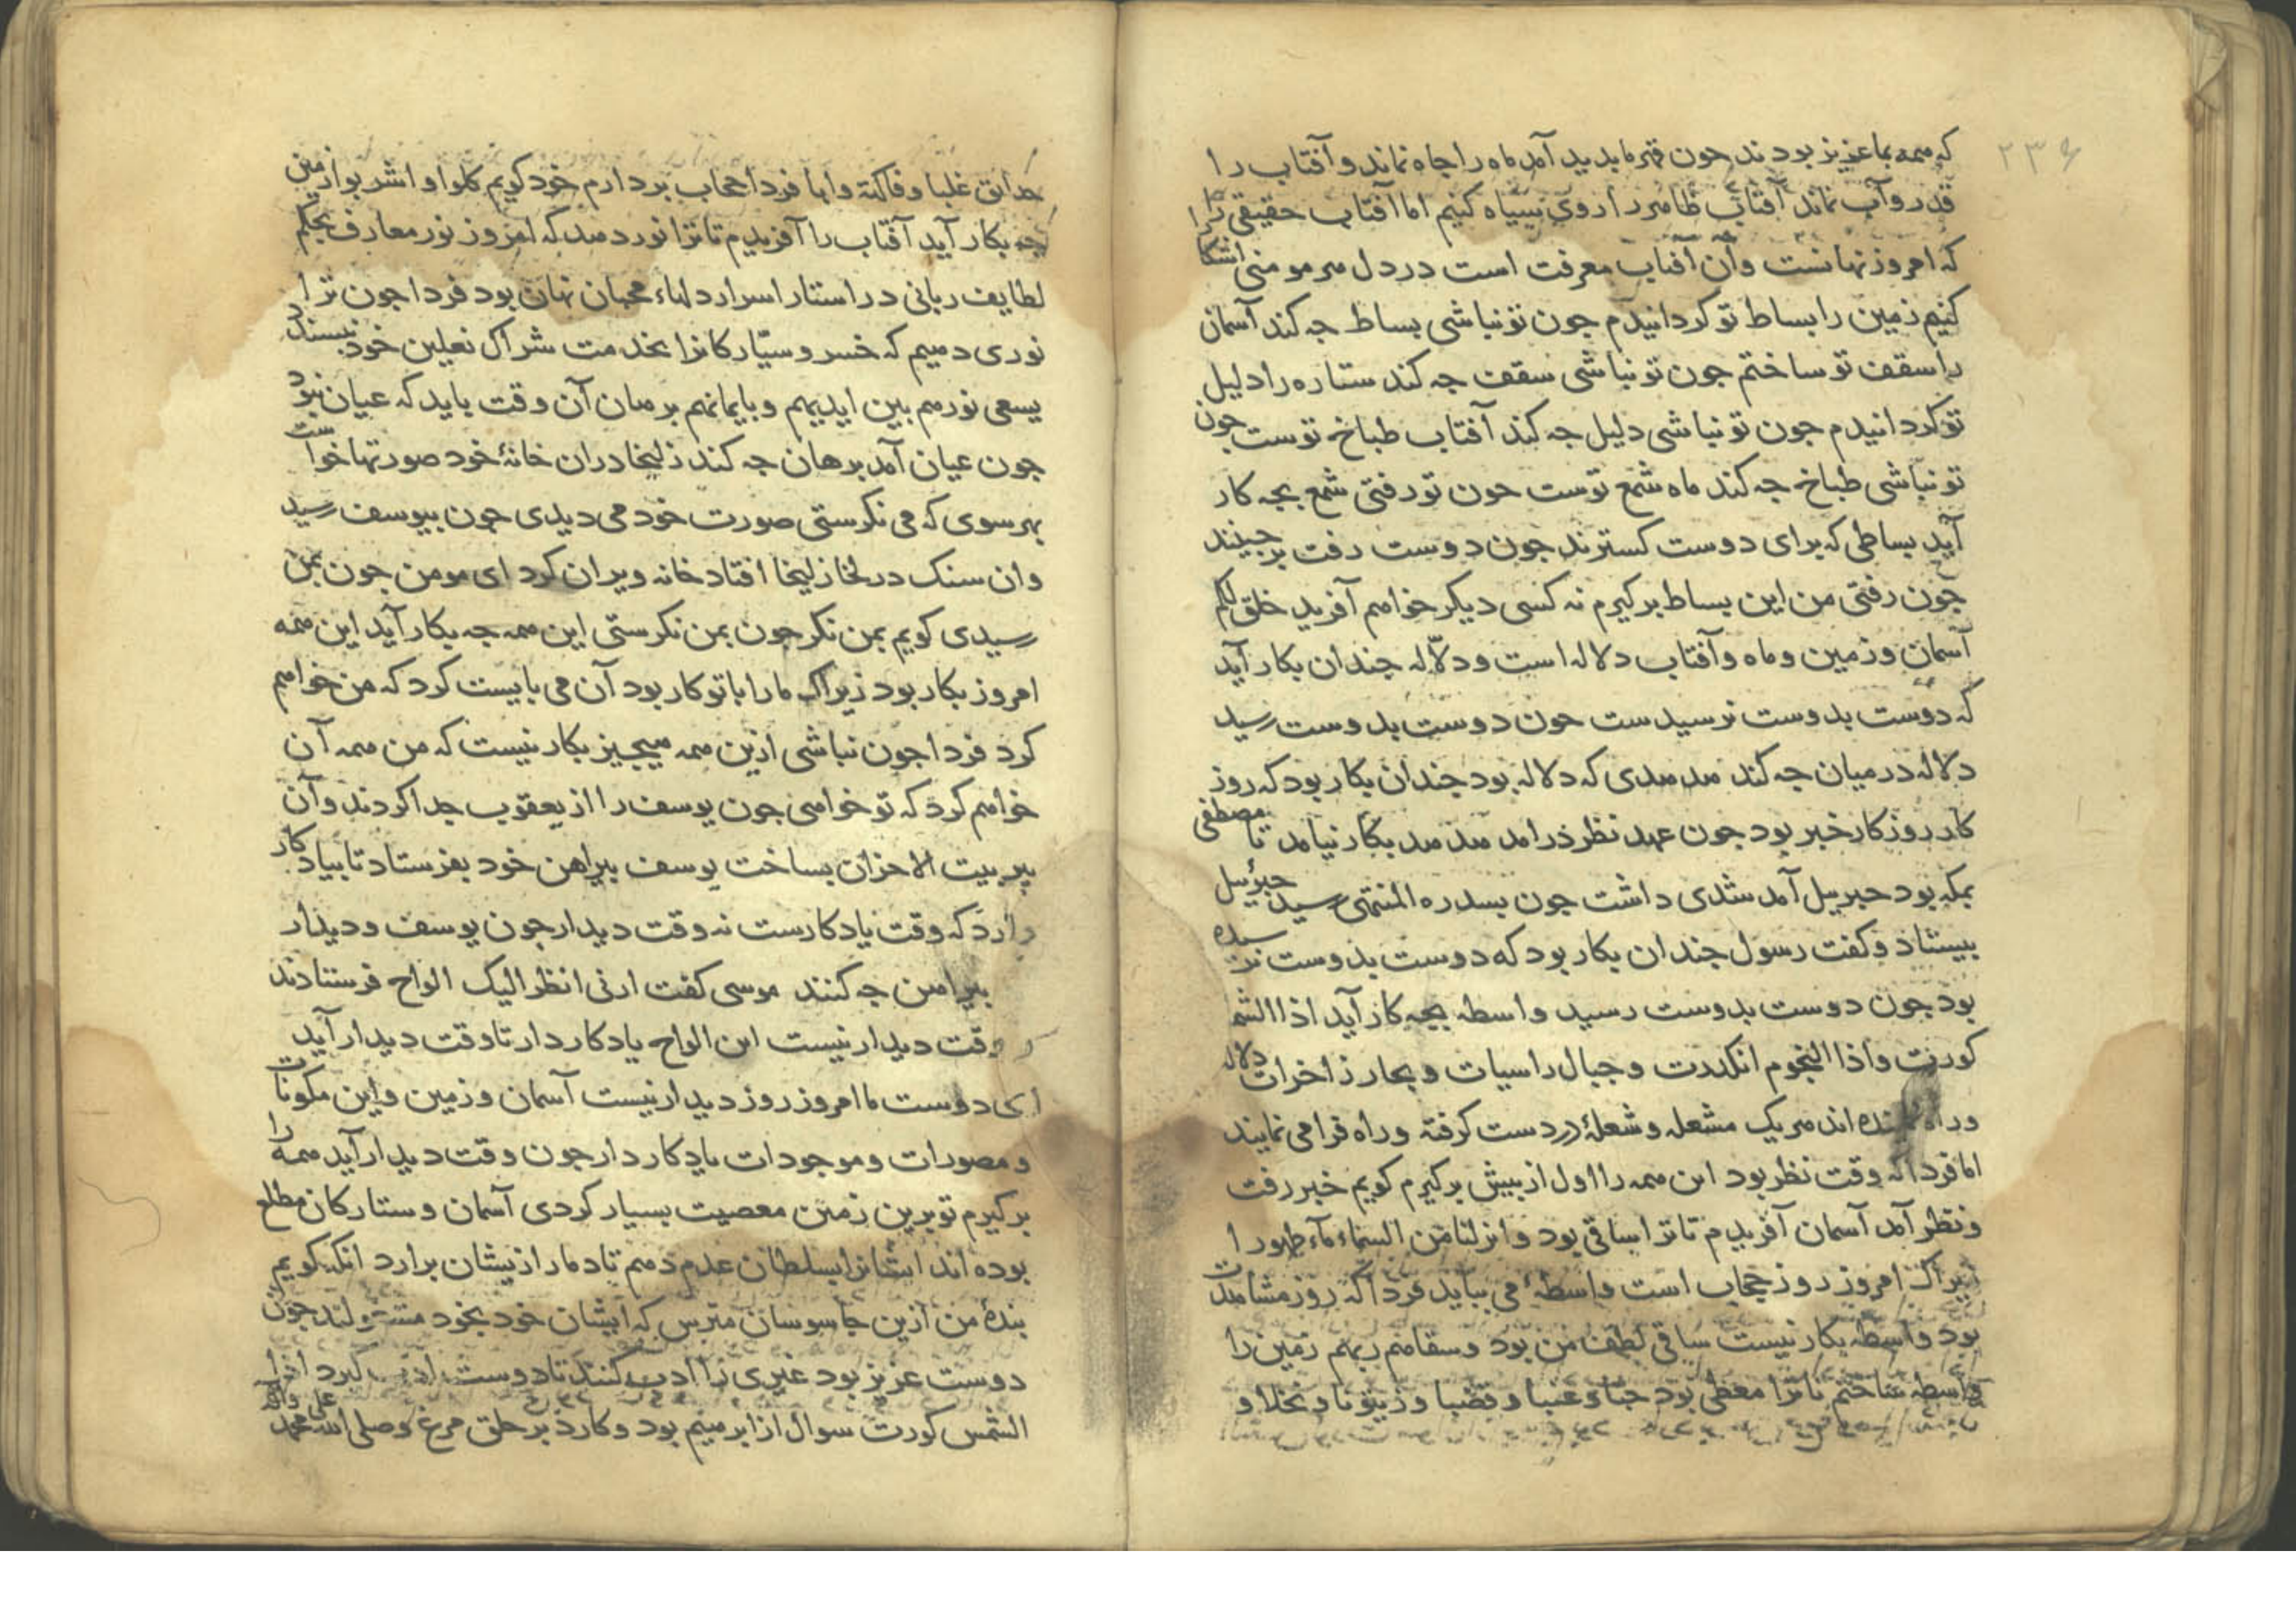 ۲۳۶
که همه بما عزیز بودند جون قهر ما بدید آمد ماه را جاه نماند و آفتاب را
قدر و آب نماند آفتاب ظاهر را روی سیاه کنیم اما آفتاب حقیقی را
که امروز نهانست و آن آفتاب معرفت است در دل هر مومنی اشکارا
کنیم زمین را بساط تو کردانیدم جون تو نباشی بساط جه کند آسمان
را سقف تو ساختم جون تو نباشی سقف جه کند ستاره را دلیل
تو کردانیدم جون تو نباشی دلیل جه کند آفتاب طباخ توست جون
تو نباشی طباخ جه کند ماه شمع توست جون تو رفتی شمع بجه کار
آید بساطی که برای دوست کسترند جون دوست رفت برجینند
جون رفتی من این بساط برکیرم نه کسی دیکر خواهم آفرید خلق لکم
آسمان و زمین و ماه و آفتاب دلاله است و دلّاله جندان بکار آید
که دوست بدوست نرسیدست جون دوست بدوست رسید
دلاله در میان جه کند هدهدی که دلاله بود جندان بکار بود که روز
کار روزکار خبر بود جون عهد نظر درامد هدهد بکار نیامد تا مصطفی
بمکه بود جبریل آمد شدی داشت جون بسدره المنتهی رسید جبرئیل
بیستاد و کفت رسول جندان بکار بود که دوست بدوست نرسیده
بود جون دوست بدوست رسید واسطه بجه کار آید اذا الشمس
کورت و اذا النجوم انکدرت و جبال راسیات و بحار زاخرات دلاله
و راه نماینده اند هر یک مشعله و شعلهٔ در دست کرفته و راه فرا می نمایند
اما فردا که وقت نظر بود این همه را اول از بیش برکیرم کویم خبر رفت
و نظر آمد آسمان آفریدم تا ترا ساقی بود و انزلنا من السماء ماء طهورا
زیراک امروز روز حجاب است واسطهٔ می بباید فردا که روز مشاهدت
بود واسطه بکار نیست ساقی لطف من بود و سقاهم ربهم زمین را
واسطه ساختم تا ترا معطی بود حبا و عنبا و قضبا و زیتونا و نخلا و
حدایق غلبا و فاکهة و ابا فردا حجاب بردارم خود کویم کلوا و اشربوا زمین
جه بکار آید آفتاب را آفریدم تا ترا نور دهد که امروز نور معارف بحکم
لطایف ربانی در استار اسرار دلهاء محبان نهان بود فردا جون ترا
نوری دهیم که خسرو سیّارکانرا بخدمت شراک نعلین خود نبسندد
یسعی نورهم بین ایدیهم و بایمانهم برهان آن وقت باید که عیان نبود
جون عیان آمد برهان جه کند زلیخا در ان خانهٔ خود صورتها خواست
بهر سوی که می نکرستی صورت خود می دیدی جون بیوسف رسید
وان سنک در لخا زلیخا افتاد خانه ویران کرد ای مومن جون بمن
رسیدی کویم بمن نکر جون بمن نکرستی این همه جه بکار آید این همه
امروز بکار بود زیراک ما را با تو کار بود آن می بایست کرد که من خواهم
کرد فردا جون نباشی ازین همه هیجیز بکار نیست که من همه آن
خواهم کرد که تو خواهی جون یوسف را از یعقوب جدا کردند و آن
پیر بیت الاحزان بساخت یوسف بیراهن خود بفرستاد تا بیادکار
دارد که وقت یادکارست نه وقت دیدار جون یوسف و دیدار
بیراهن جه کنند موسی کفت ارنی انظر الیک الواح فرستادند
وقت دیدار نیست این الواح یادکار دار تا وقت دیدار آید
ای دوست ما امروز روز دیدار نیست آسمان و زمین و این مکونات
و مصورات و موجودات یادکار دار جون وقت دیدار آید همه را
برکیرم تو برین زمین معصیت بسیار کردی آسمان و ستارکان مطلع
بوده اند ایشانرا بسلطان عدم دهم تا دمار ازیشان برارد انکه کویم
بندهٔ من ازین جاسوسان مترس که ایشان خود بخود مشغولند جون
دوست عزیز بود غیری را ادب کنند تا دوست ادب کیرد اذا
الشمس کورت سوال از ابرهیم بود و کارد بر حلق مرغ و صلی الله علی محمد وآله